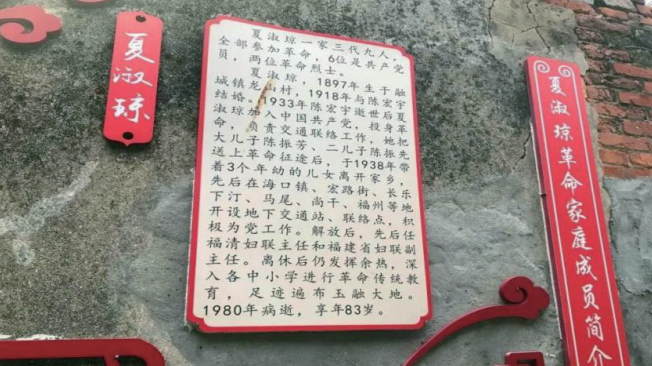 夏淑琼
夏淑琼一家三代九人，
全部参加革命，6位是共产党
员，两位革命烈士。
夏淑琼，1897年生于融
城镇龙山村，1918年与陈宏宇
结婚。1933年陈宏宇逝世后夏
淑琼加入中国共产党，投身革
命，负责交通联络工作，她把
大儿子陈振芳、二儿子陈振先
送上革命征途后，于1938年带
着3个年幼的儿女离开家乡，
先后在海口镇、宏路街、长乐
下汀、马尾、尚干、福州等地
开设地下交通站、联络点，积
极为党工作。解放后，先后任
福清妇联主任和福建省妇联副
主任。离休后仍发挥余热，深
入各中小学进行革命传统教
育，足迹遍布玉融大地。
1980年病逝，享年83岁。
夏淑琼革命家庭成员简介